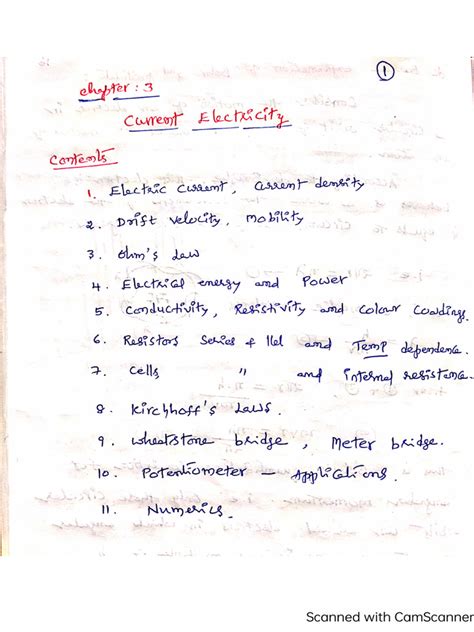 1
Chapter : 3
Current Electricity
Contents
1. Electric current, current density
2. Drift velocity, mobility
3. Ohm's Law
4. Electrical energy and Power
5. Conductivity, Resistivity and Colour Coadings.
6. Resistors Series & llel and Temp dependence.
7. Cells " and internal resistance.
8. Kirchhoff's Laws.
9. Wheatstone bridge, Meter bridge.
10. Potentiometer – Applications.
11. Numerics.
Scanned with CamScanner